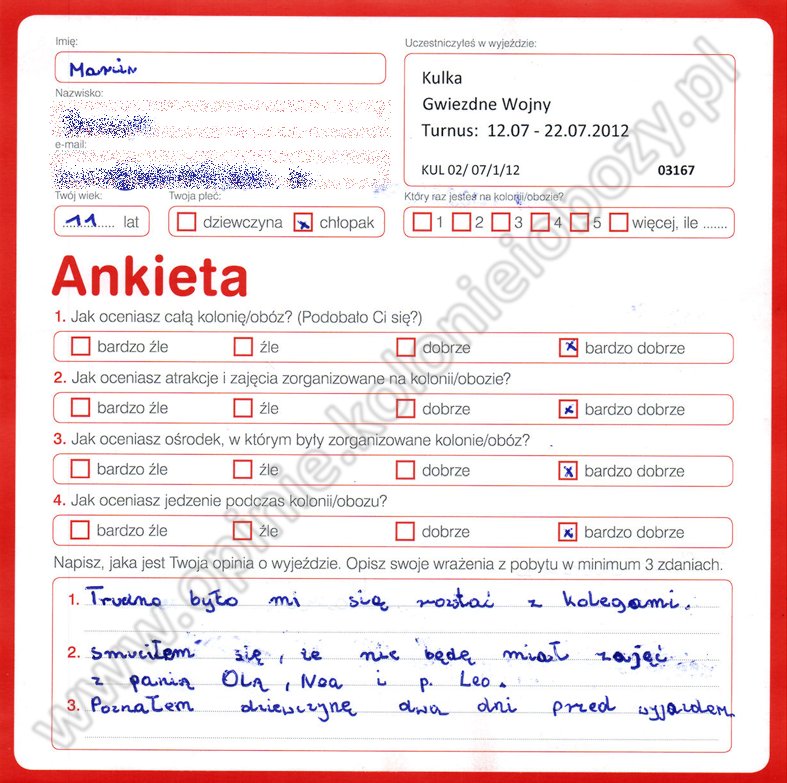 Imię:
Marcin
Uczestniczyłeś w wyjeździe:
Kulka
Gwiezdne Wojny
Turnus: 12.07 - 22.07.2012
KUL 02/ 07/1/12 03167
Nazwisko:
e-mail:
Twój wiek:
11 lat
Twoja płeć:
dziewczyna x chłopak
Który raz jesteś na kolonii/obozie?
1 2 3 4 5 więcej, ile .......
Ankieta
1. Jak oceniasz całą kolonię/obóz? (Podobało Ci się?)
bardzo źle źle dobrze x bardzo dobrze
2. Jak oceniasz atrakcje i zajęcia zorganizowane na kolonii/obozie?
bardzo źle źle dobrze x bardzo dobrze
3. Jak oceniasz ośrodek, w którym były zorganizowane kolonie/obóz?
bardzo źle źle dobrze x bardzo dobrze
4. Jak oceniasz jedzenie podczas kolonii/obozu?
bardzo źle źle dobrze x bardzo dobrze
Napisz, jaka jest Twoja opinia o wyjeździe. Opisz swoje wrażenia z pobytu w minimum 3 zdaniach.
1. Trudno było mi się rozstać z kolegami.
2. smuciłem się, że nie będę miał zajęć
z panią Olą, Noa i p. Leo.
3. Poznałem dziewczynę dwa dni przed wyjazdem
www.opinie.kolonieiobozy.pl